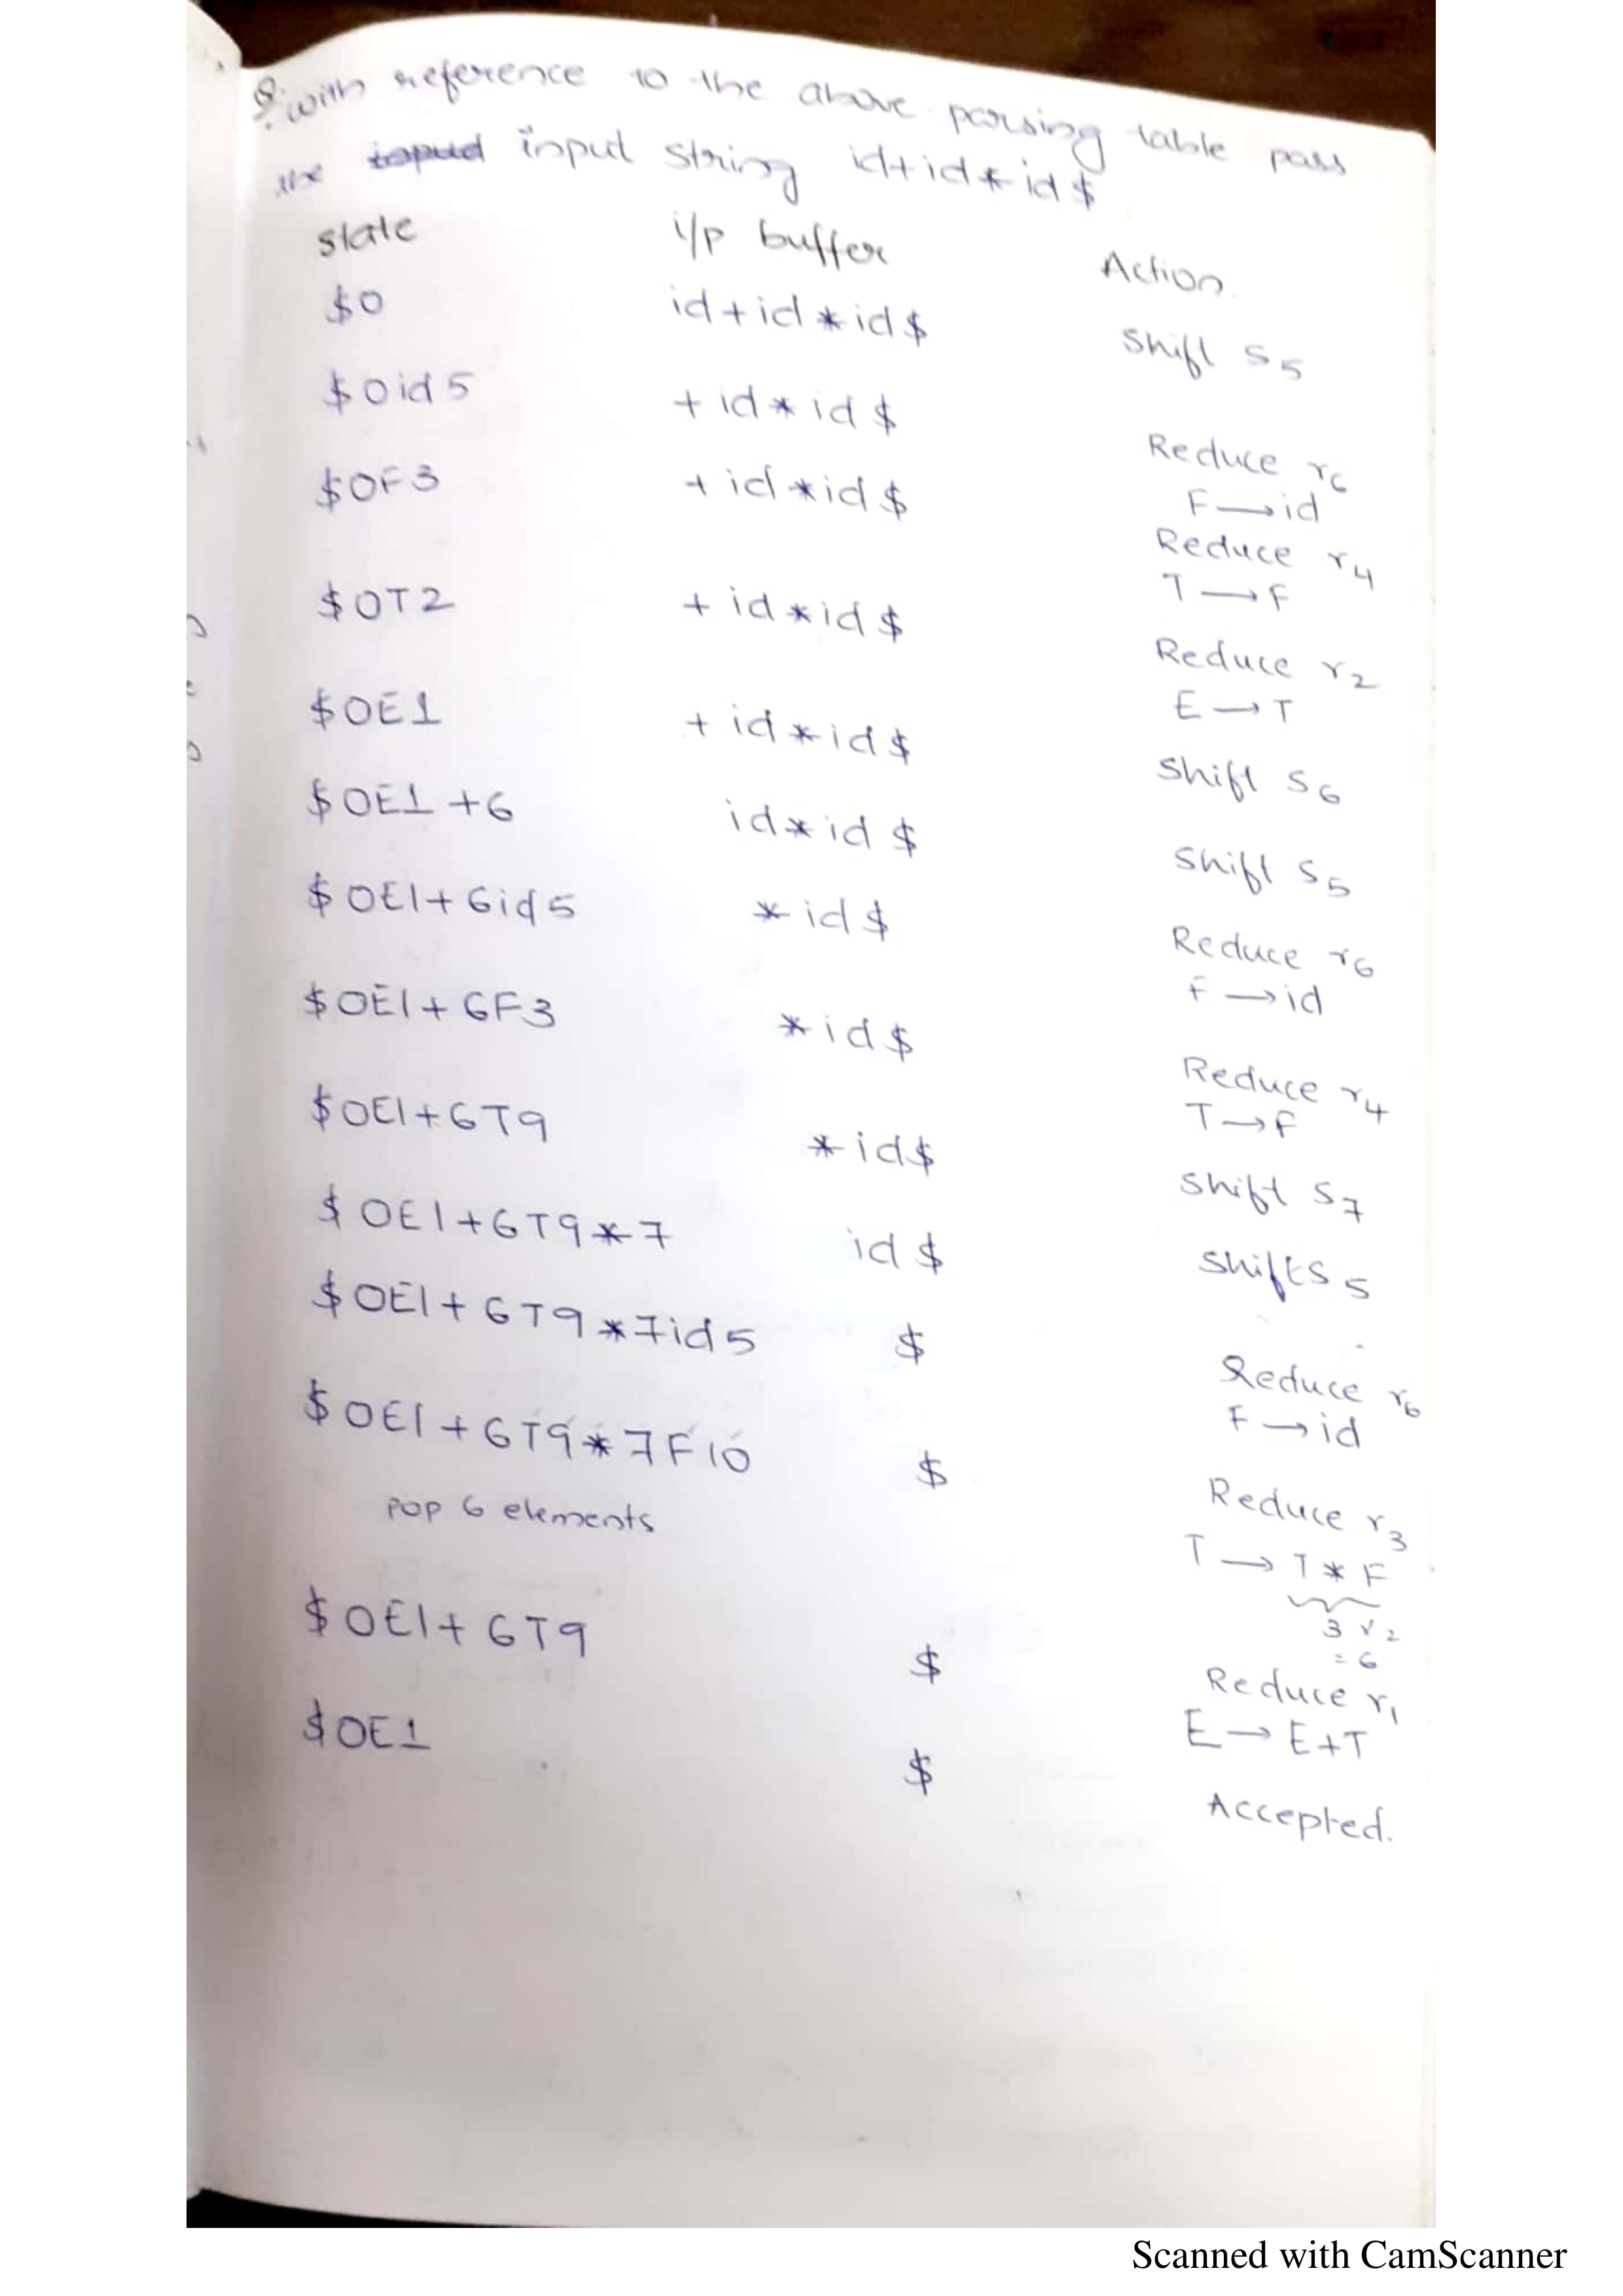 Q. with reference to the above parsing table pass
the input string id+id*id$
state i/p buffer Action.
$0 id+id*id$ Shift S5
$0id5 +id*id$ Reduce r6
F→id
$0F3 +id*id$ Reduce r4
T→F
$0T2 +id*id$ Reduce r2
E→T
$0E1 +id*id$ Shift S6
$0E1+6 id*id$ Shift S5
$0E1+6id5 *id$ Reduce r6
F→id
$0E1+6F3 *id$ Reduce r4
T→F
$0E1+6T9 *id$ Shift S7
$0E1+6T9*7 id$ Shift S5
$0E1+6T9*7id5 $ Reduce r6
F→id
$0E1+6T9*7F10 $ Reduce r3
pop 6 elements T→T*F
3 × 2
= 6
$0E1+6T9 $ Reduce r1
E→E+T
$0E1 $ Accepted.
Scanned with CamScanner